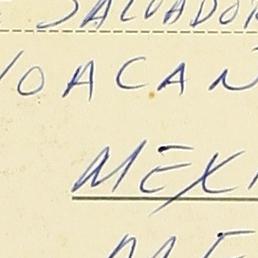 SALVADOR
YOACAN
MEXI
ME